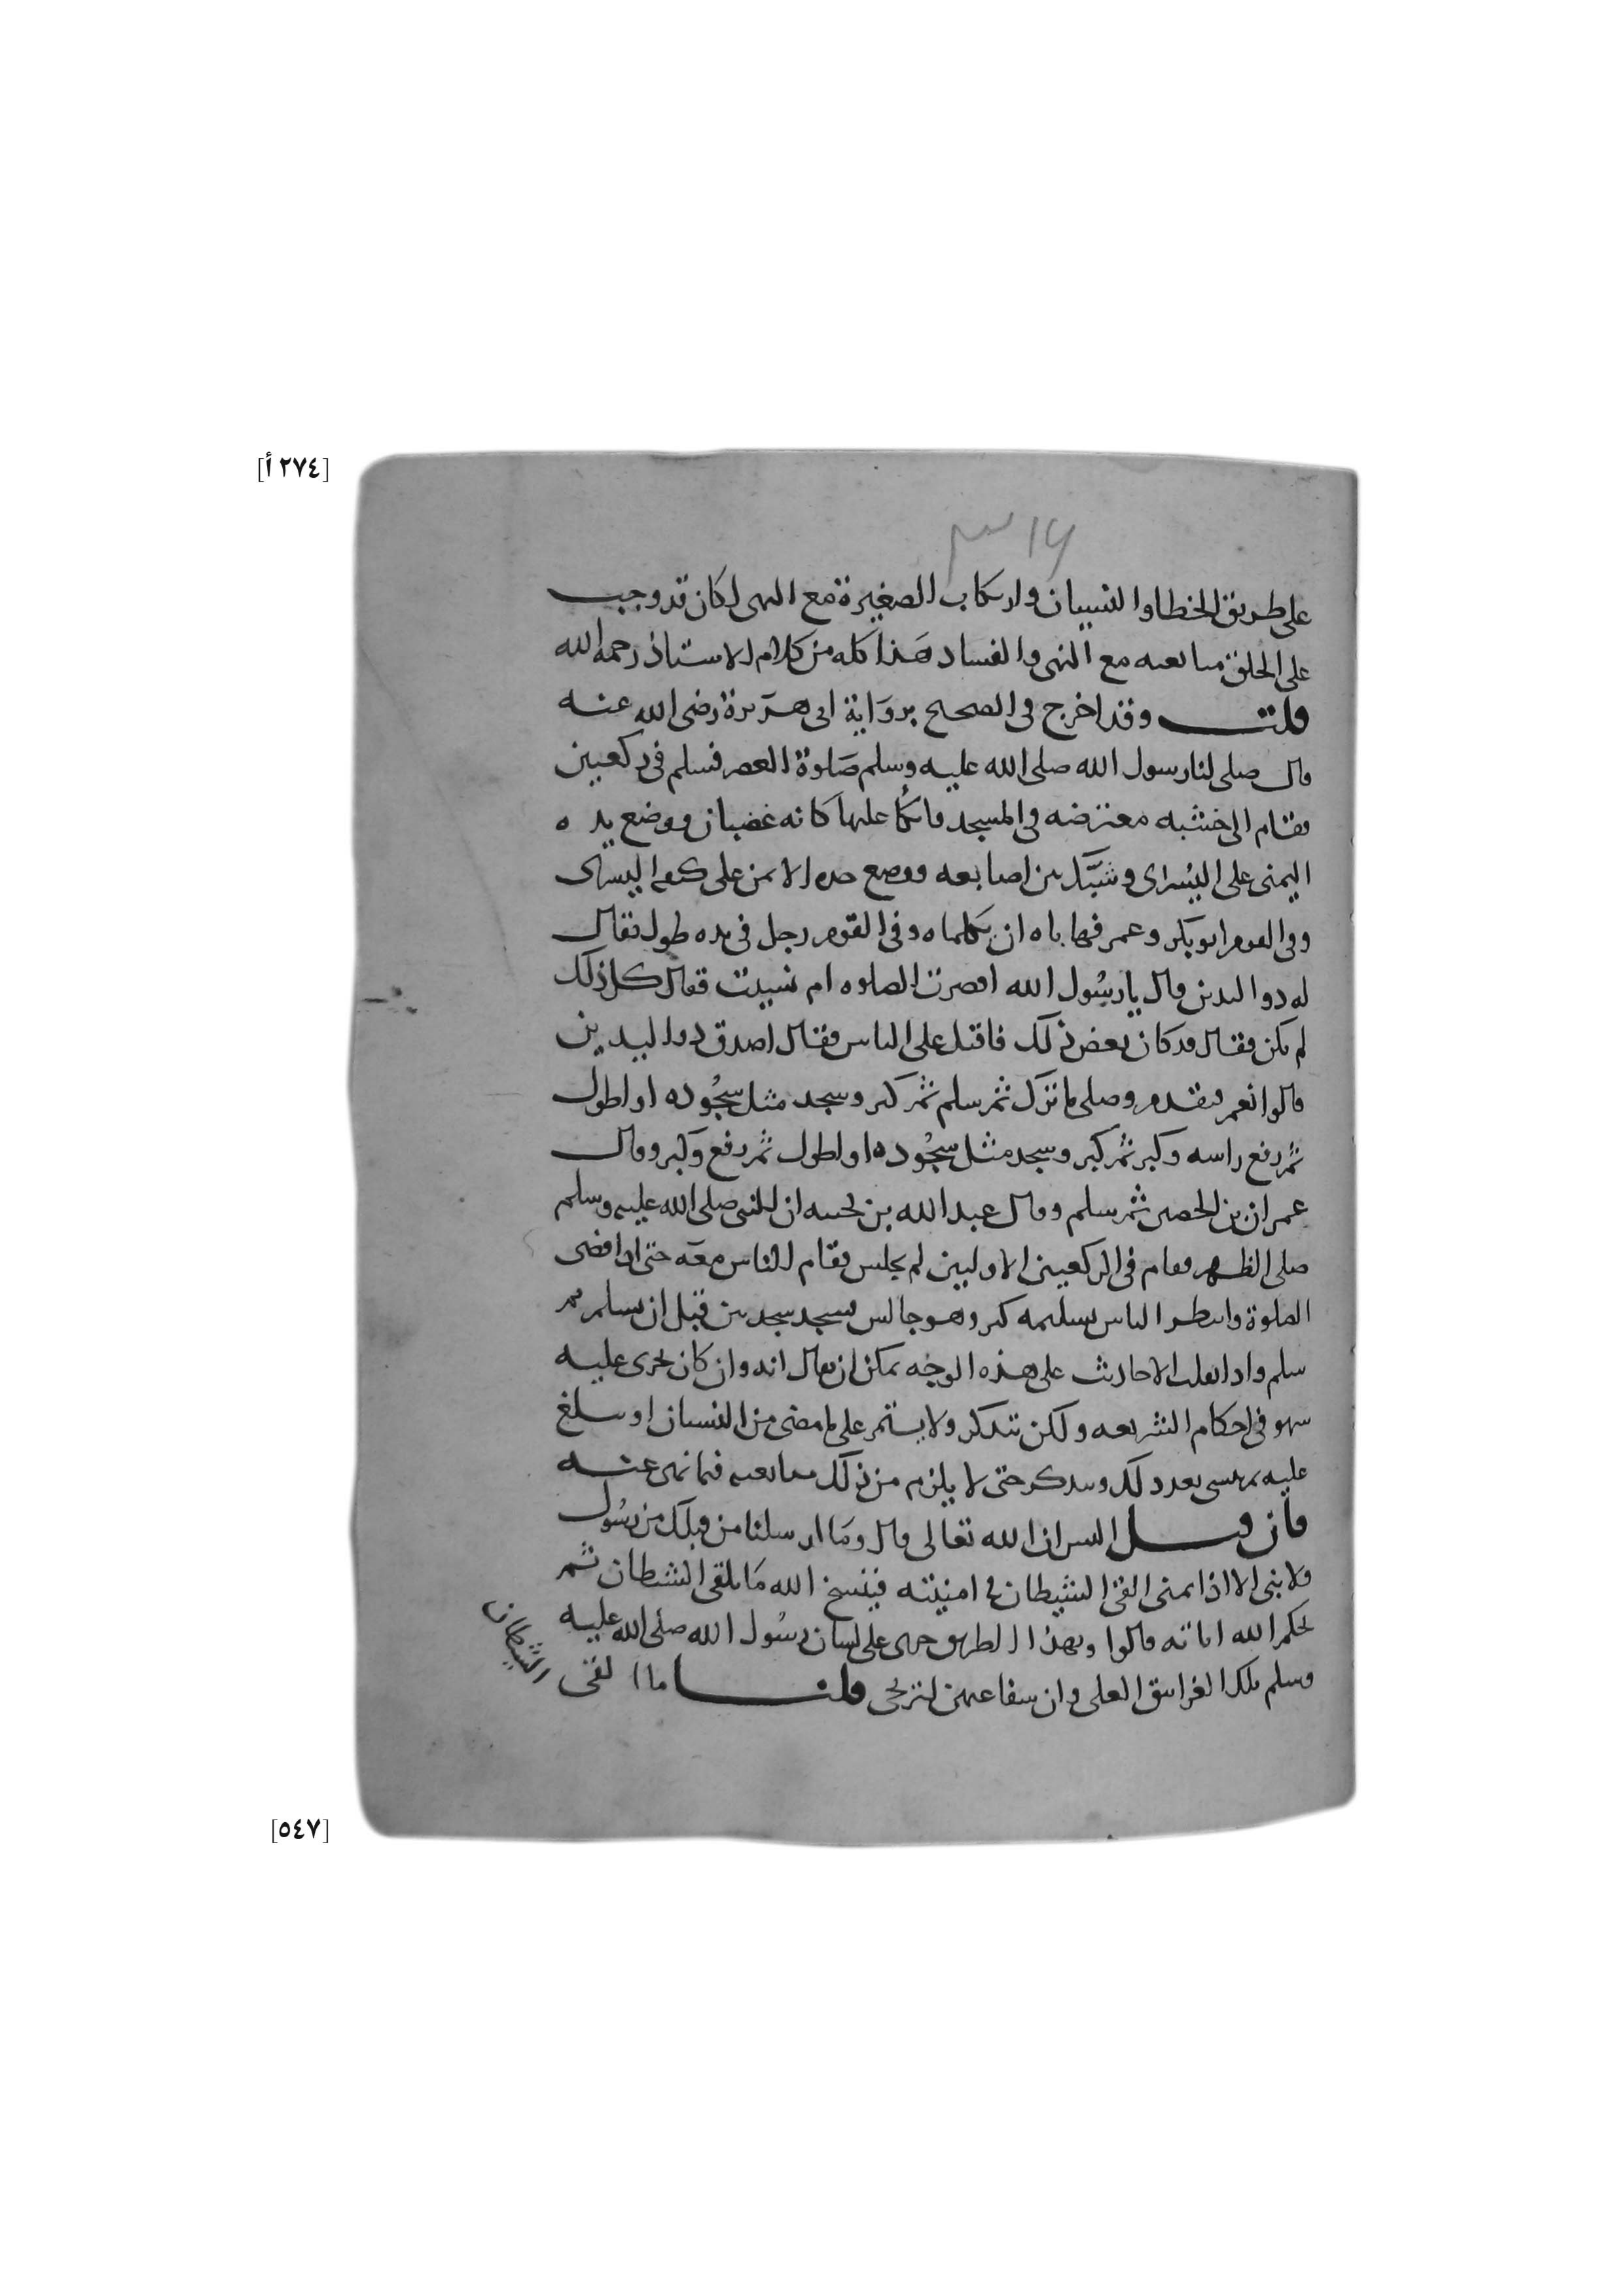 [٢٧٤ أ]
على طريق الخطا والنسيان وارتكاب الصغيرة مع النهى لكان قد وجب
على الخلق متابعته مع النهى والفساد هذا كله من كلام الاستاذ رحمه الله
قلت وقد اخرج فى الصحيح برواية ابى هريرة رضى الله عنه
قال صلى لنا رسول الله صلى الله عليه وسلم صلوة العصر فسلم فى ركعتين
فقام الى خشبه معترضه فى المسجد فاتكأ عليها كانه غضبان ووضع يده
اليمنى على اليسرى وشبك بين اصابعه ووضع خده الايمن على كفه اليسرى
وفى القوم ابو بكر وعمر فهاباه ان يكلماه وفى القوم رجل فى يده طول يقال
له ذو اليدين قال يا رسول الله اقصرت الصلوه ام نسيت فقال كل ذلك
لم يكن فقال قد كان بعض ذلك فاقبل على الناس فقال اصدق ذوا اليدين
قالوا نعم فتقدم وصلى ما ترك ثم سلم ثم كبر وسجد مثل سجوده او اطول
ثم رفع راسه وكبر ثم كبر وسجد مثل سجوده او اطول ثم رفع وكبر وقال
عمران بن الحصين ثم سلم وقال عبد الله بن بحينه ان النبى صلى الله عليه وسلم
صلى الظهر فقام فى الركعتين الاوليين لم يجلس فقام الناس معه حتى اذا قضى
الصلوة وانتظر الناس تسليمه كبر وهو جالس فسجد سجدتين قبل ان يسلم ثم
سلم واذا نقلت الاحاديث على هذه الوجه يمكن ان يقال انه وان كان يجرى عليه
سهو فى احكام الشريعه ولكن يتذكر ولا يستمر على ما مضى من النسيان او يبلغ
عليه ثم ينسى بعد ذلك ويتذكر حتى لا يلزم من ذلك متابعته فيما نهى عنه
فان قيل اليس ان الله تعالى قال وما ارسلنا من قبلك من رسول
ولا نبى الا اذا تمنى القى الشيطان فى امنيته فينسخ الله ما يلقى الشيطان ثم
يحكم الله اياته قالوا وبهذا الطريق جرى على لسان رسول الله صلى الله عليه
وسلم تلك الغرانيق العلى وان شفاعتهن لترتجى قلنا ما القى الشيطان
[٥٤٧]